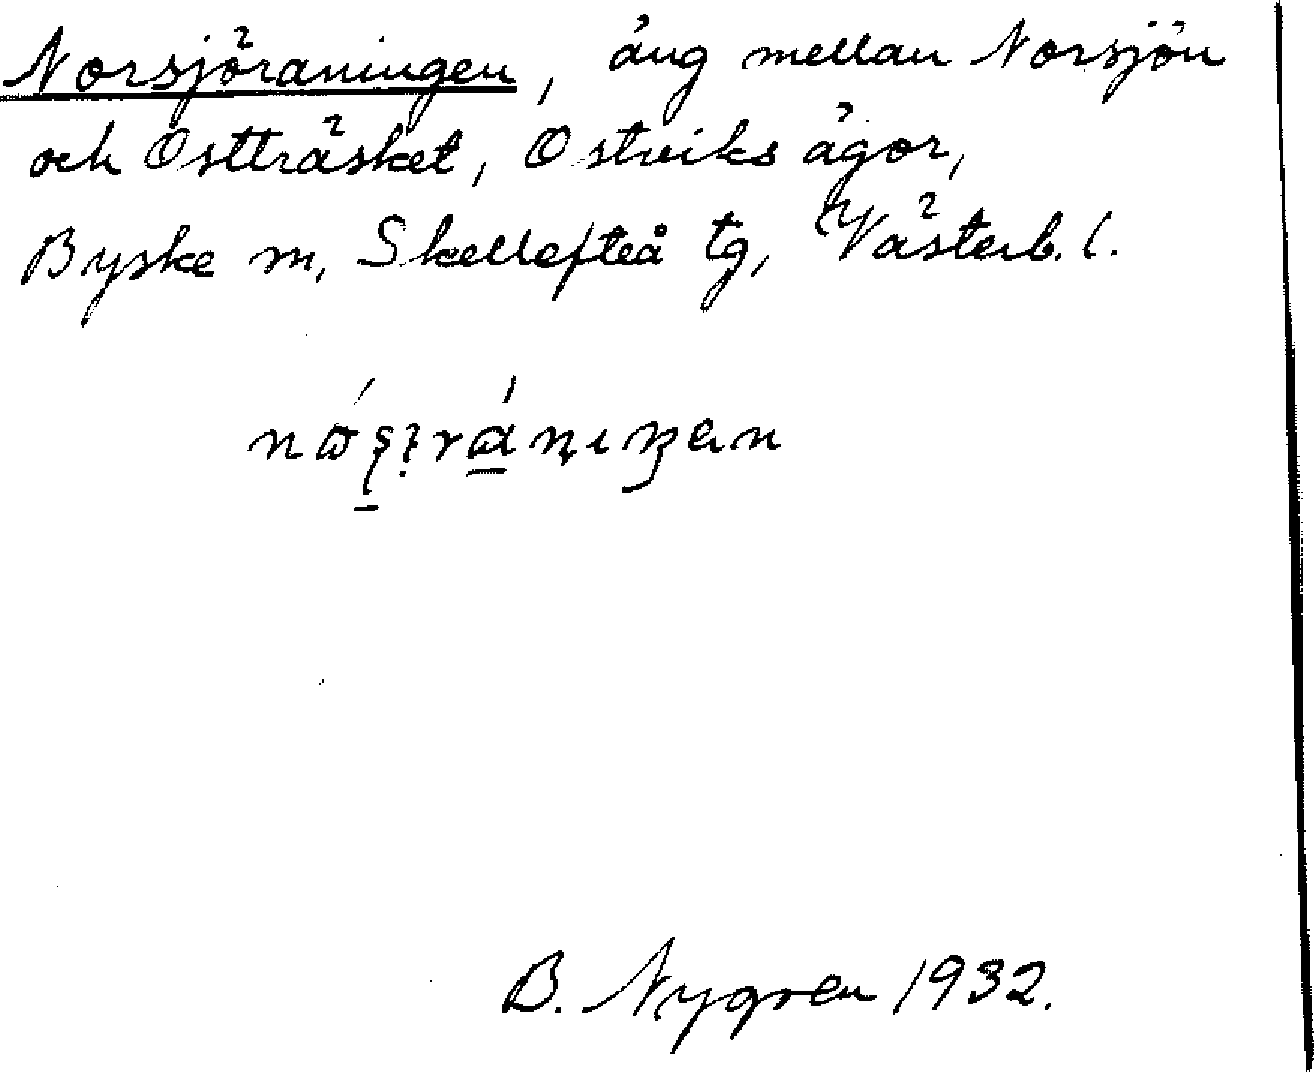 Norsjöraningen, äng mellan Norsjön
och Östträsket, Ostviks ägor,
Byske sn, Skellefteå tg, Västerb. l.
B. Nygren 1932.